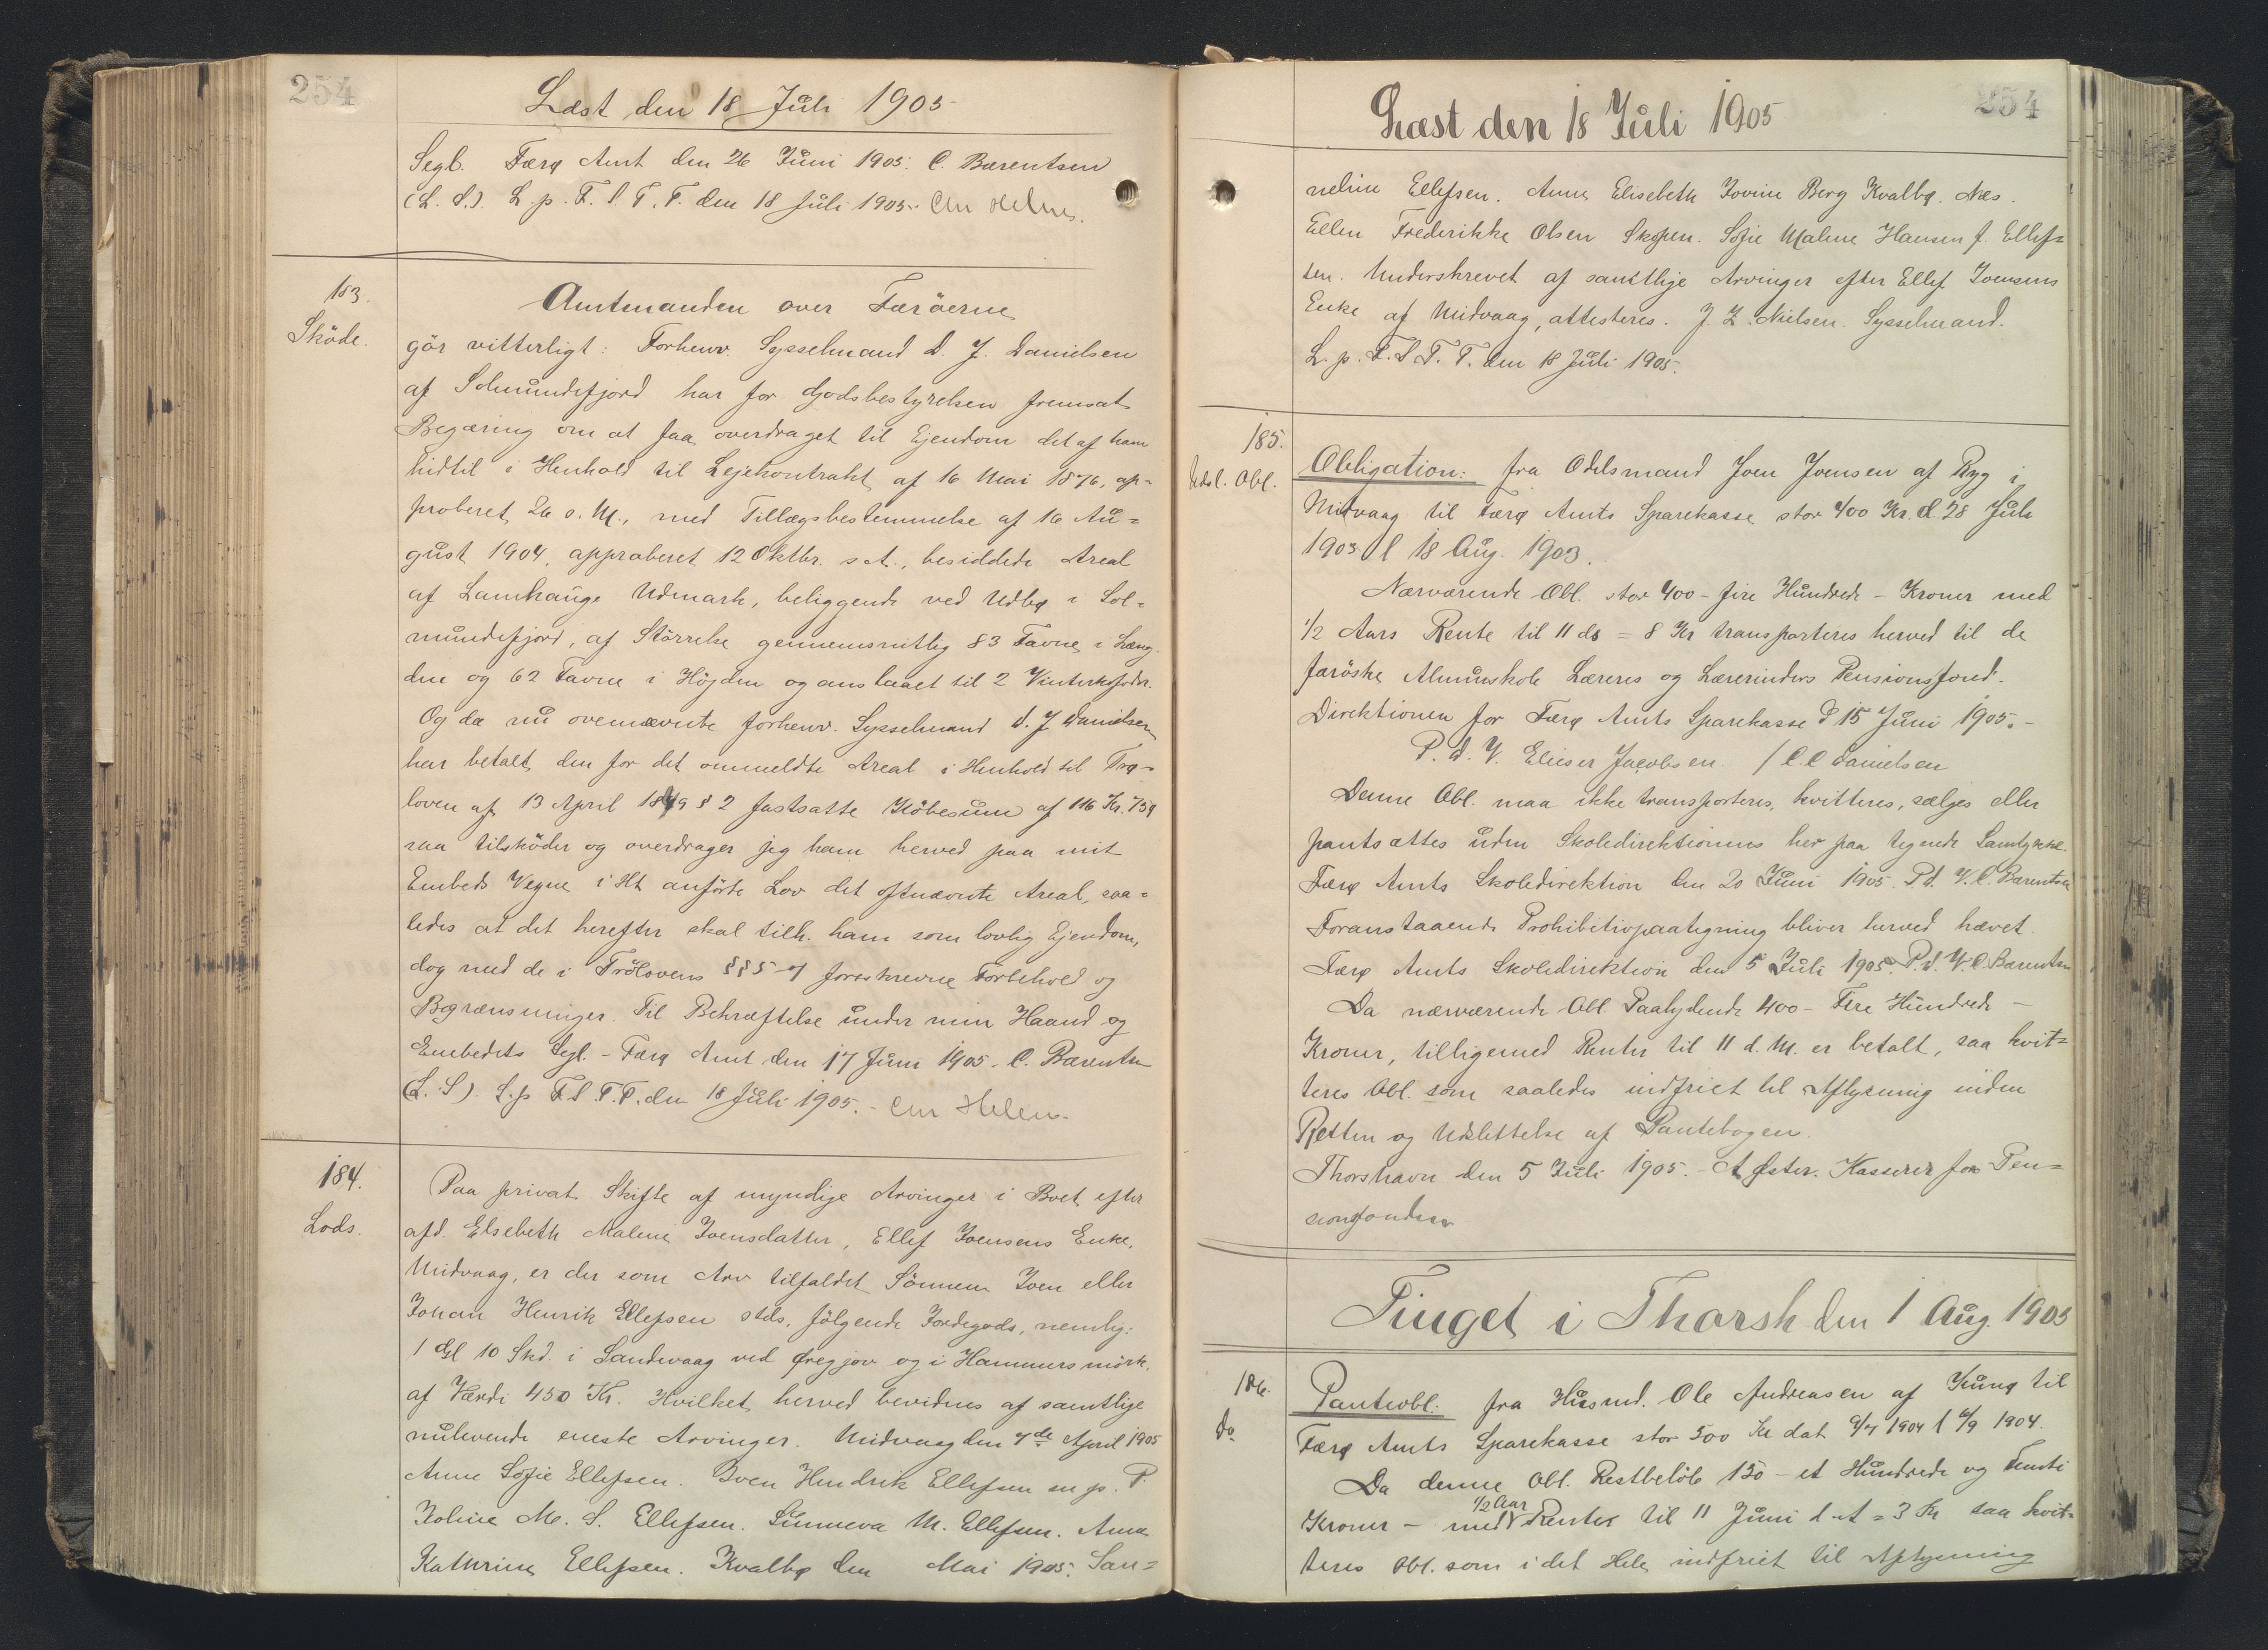 254
Læst den 18 Juli 1905
Segl. Færø Amt den 26 Juni 1905. C. Bærentsen
(L. S.). L. p. F. S. T. T. den 18 Juli 1905.
183.
Sköde.
Amtmanden over Færöerne
gör vitterligt: Forhenv. Sysselmand D. J. Danielsen
af Solmundefjord har for Godsbestyrelsen fremsat
Begæring om at faa overdraget til Ejendom det af ham
hidtil i Henhold til Lejekontrakt af 16 Mai 1876, ap-
proberet 26 s. M., med Tillægsbestemmelse af 16 Au=
gust 1904, approberet 12 Oktbr. s. A., besiddede Areal
af Lamhauge Udmark, beliggende ved Udbø i Sol-
mundefjord, af Störrelse gennemsnitlig 83 Favne i Læng-
den og 62 Favne i Höjden og anslaaet til 2 Vinterkofoder.
Og da nu ovennævnte forhenv. Sysselmand D. J. Danielsen
har betalt den for det ommeldte Areal i Henhold til Trø-
loven af 13 April 1849 § 2 fastsatte Köbesum af 116 Kr. 75ø
saa tilsköder og overdrager jeg ham herved paa mit
Embeds Vegne i Ht anförte Lov det oftnævnte Areal, saa=
ledes at det herefter skal tilh. ham som lovlig Ejendom,
dog med de i Trölovens §§ 5-7 foreskrevne Forbehold og
Begrænsninger. Til Bekræftelse under min Haand og
Embedets Segl. - Færø Amt den 17 Juni 1905. C. Bærentsen
(L. S). L. p F. S. T. T. den 18 Juli 1905. -
184.
Lods.
Paa privat Skifte af myndige Arvinger i Boet efter
afd. Elsebeth Malene Joensdatter, Ellef Joensens Enke,
Midvaag, er der som Arv tilfaldet Sönnen Joen eller
Johan Henrik Ellefsen stds. fölgende Jordegods, nemlig:
1 Gl 10 Skd. i Sandevaag ved Øregjov og i Hammersmörk.
af Værdi 450 Kr. Hvilket herved bevidnes af samtlige
nulevende eneste Arvinger. Midvaag den 7de April 1905
Anne Sofie Ellefsen. Joen Hendrik Ellefsen m. p. P.
Joline M. S. Ellefsen. Sunneva M. Ellefsen. Anna
Kathrine Ellefsen. Kvalbø den Mai 1905. San=
254
Læst den 18 Juli 1905
neline Ellefsen. Anne Elisebeth Jovine Berg Kvalbø. Næs.
Ellen Frederikke Olsen Skopen. Sofie Malene Hansen f. Ellef=
sen. Underskrevet af samtlige Arvinger efter Ellef Joensens
Enke af Midvaag, attesteres. J. Z. Nielsen. Sysselmand.
L. p. F. S. T. T. den 18 Juli 1905.
185.
Udsl. Obl.
Obligation: fra Odelsmand Joen Joensen af Ryg i
Midvaag til Færø Amts Sparekasse stor 400 Kr. d. 28 Juli
1903 l 18 Aug. 1903.
Nærværende Obl. stor 400 - fire Hundrede - Kroner med
1/2 Aars Rente til 11 ds = 8 Kr transporteres herved til de
færöske Almuskole Læreres og Lærerinders Pensionsfond.
Direktionen for Færø Amts Sparekasse d 15 Juni 1905. -
P. D. V. Elieser Jacobsen. / C. C Danielsen
Denne Obl. maa ikke transporteres, kvitteres, sælges eller
pantsættes uden Skoledirektionens her paa tegnede Samtykke.
Færø Amts Skoledirektion den 20 Juni 1905. P. d. V. C. Bærentsen
Foranstaaende Prohibitivpaategning bliver herved hævet.
Færø Amts Skoledirektion den 5 Juli 1905. P. d. V. C. Bærentsen
Da nærværende Obl. Paalydende 400 - Fire Hundrede -
Kroner, tilligemed Renter til 11 d. M. er betalt, saa kvit=
teres Obl. som saaledes indfriet til Aflysning inden
Retten og Udslettelse af Pantebogen.
Thorshavn den 5 Juli 1905. - A Øster. Kasserer for Pen=
sionsfonden
Tinget i Thorsh den 1 Aug. 1905
186.
Do
Panteobl. fra Husmd. Ole Andreasen af Kunø til
Færø Amts Sparekasse stor 500 Kr dat 9/7 1904 l 6/9 1904.
Da denne Obl. Restbelöb 150 - et Hundrede og Femti
Kroner - med 1/2 Aar Renter til 11 Juni d. A = 3 Kr saa kvit=
teres Obl. som i det Hele indfriet til Aflysning